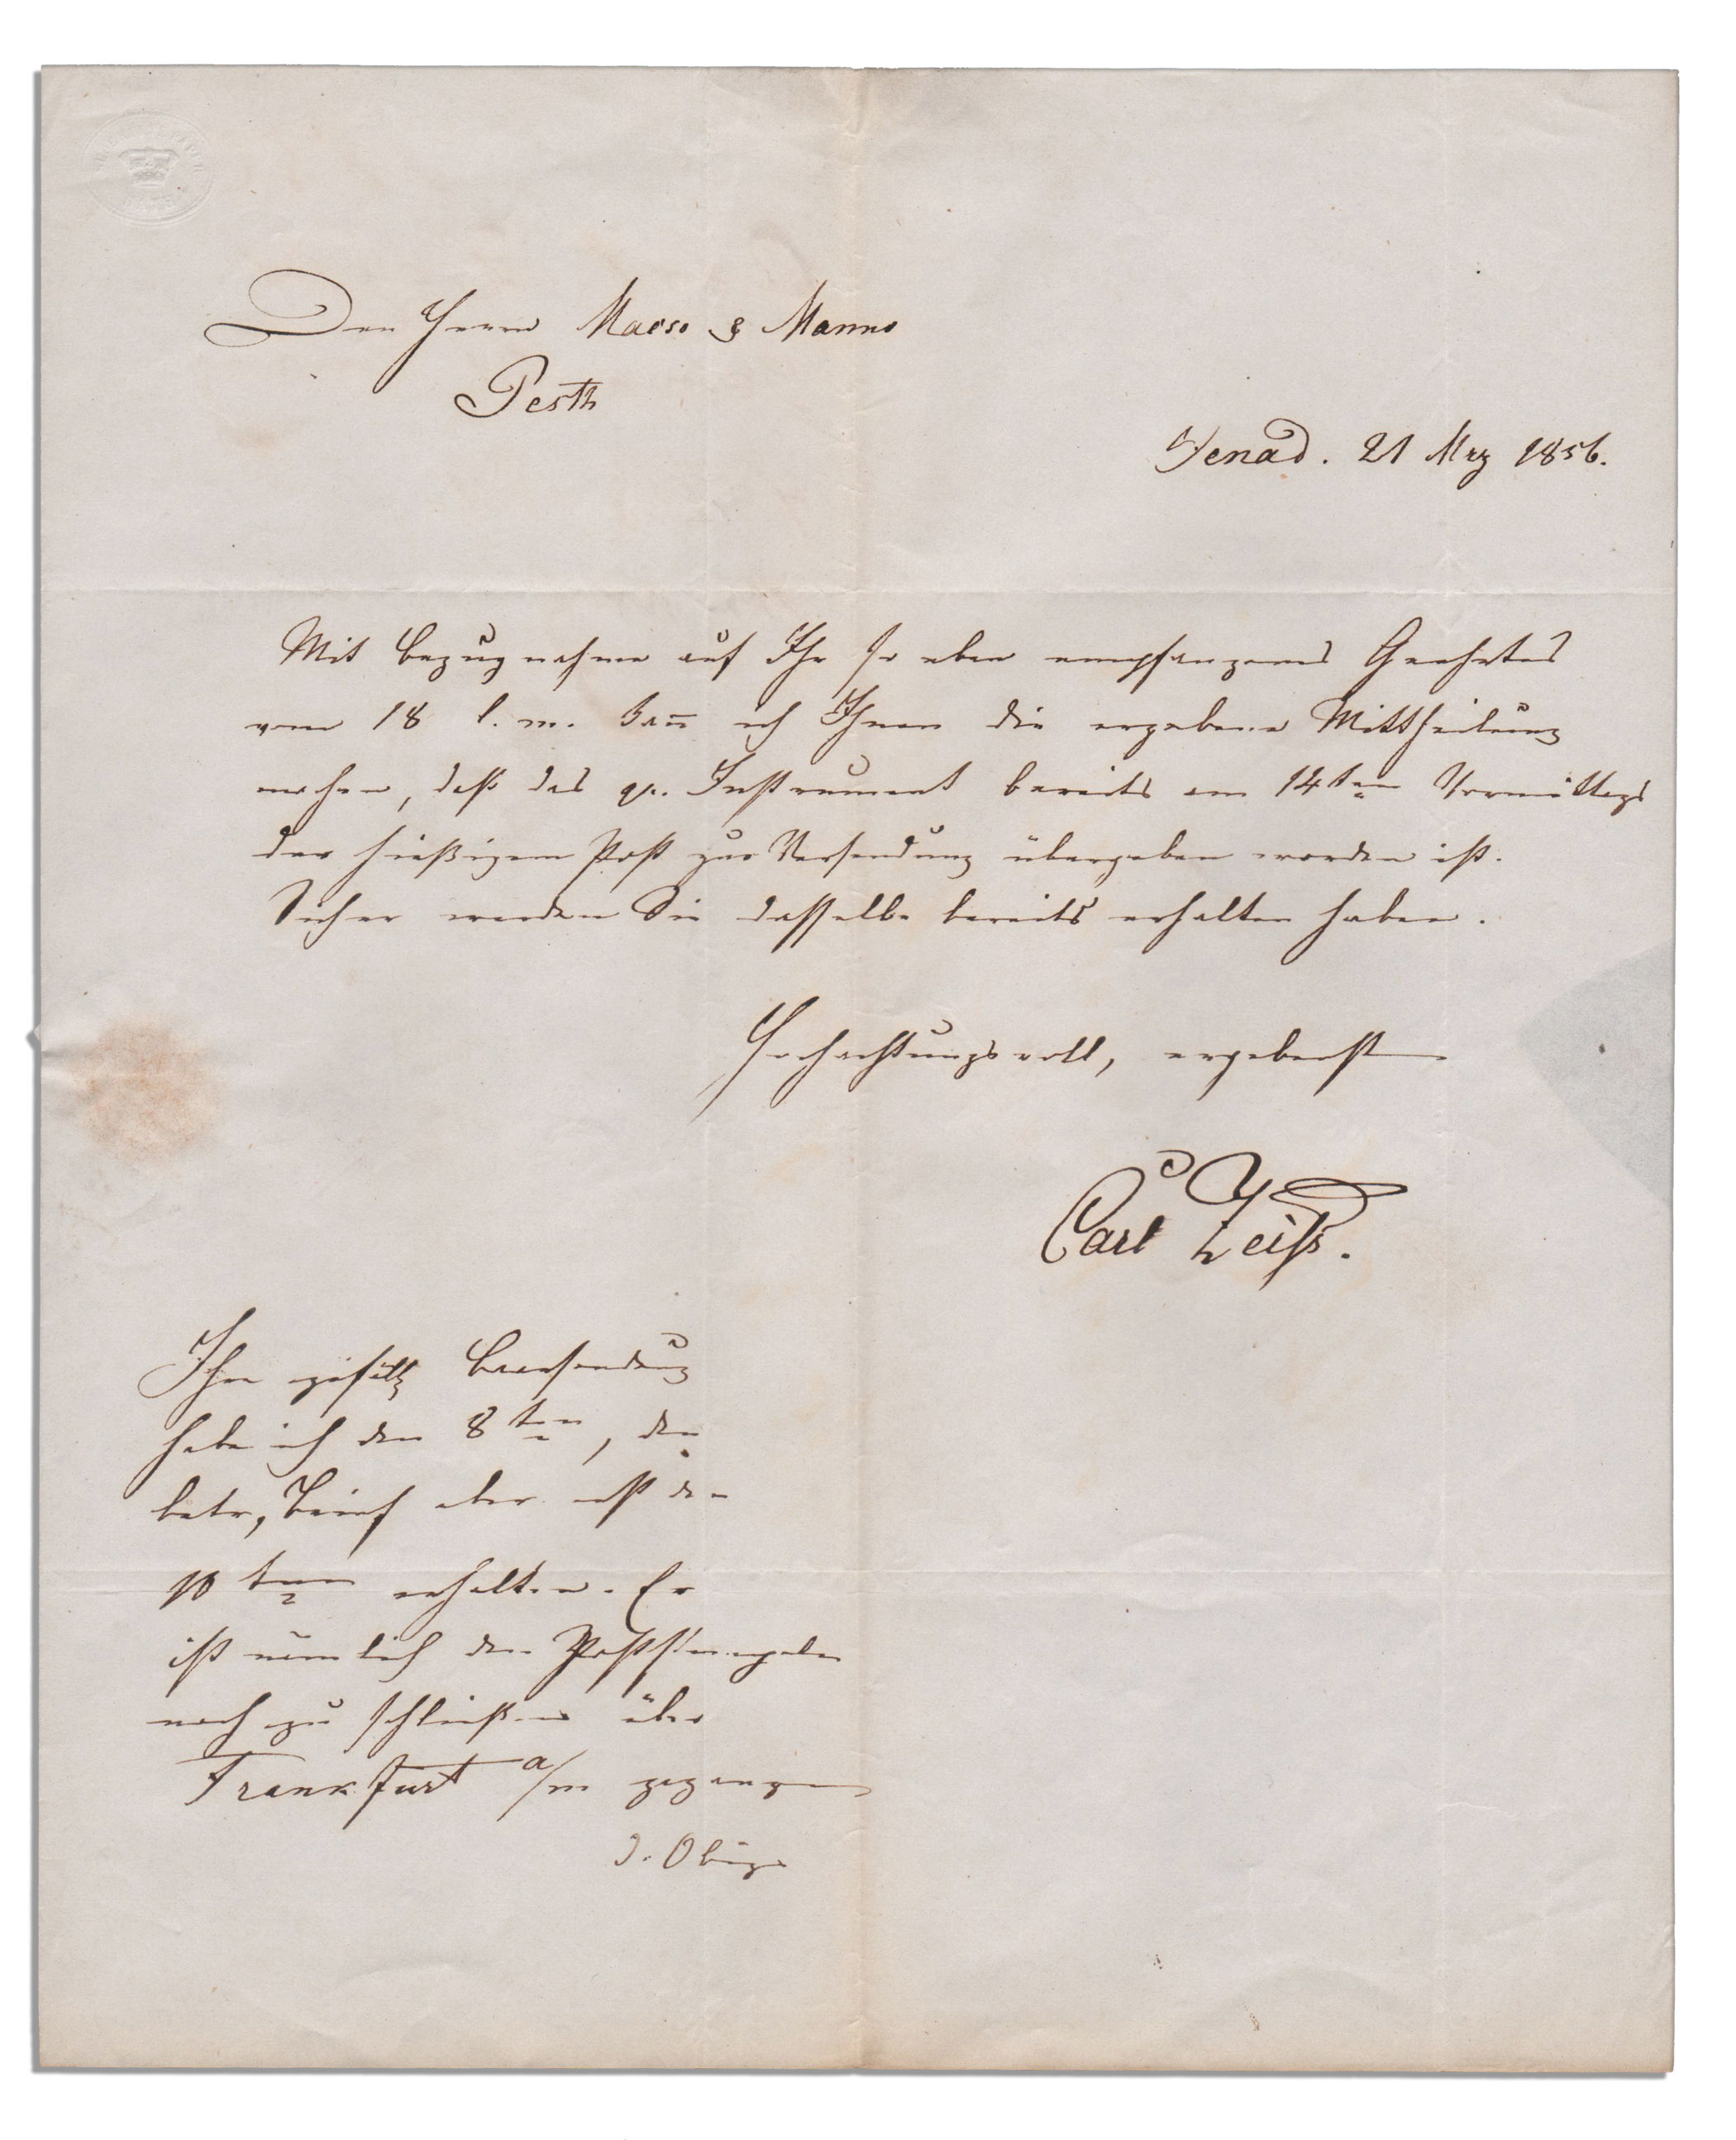 Den Herren Maeso & Manno
Pesth
Jena d. 21 Mrz 1856.
Mit Bezugnahme auf Ihr so eben empfangenes Geehrtes
vom 18 l. m. kan̄ ich Ihnen die ergebene Mittheilung
machen, daß das qu. Instrument bereits am 14ten Vormittags
der hießigen Post zur Versendung übergeben worden ist.
Sicher werden Sie dasselbe bereits erhalten haben.
Hochachtungsvoll, ergebenst
Carl Zeiß.
Ihre gefällg Baarsendung
habe ich den 8ten, den
betr, Brief aber erst den
10ten erhalten. Er
ist nämlich den Poststempeln
nach zu schließen über
Frankfurt a/m gegangen
d. Obige